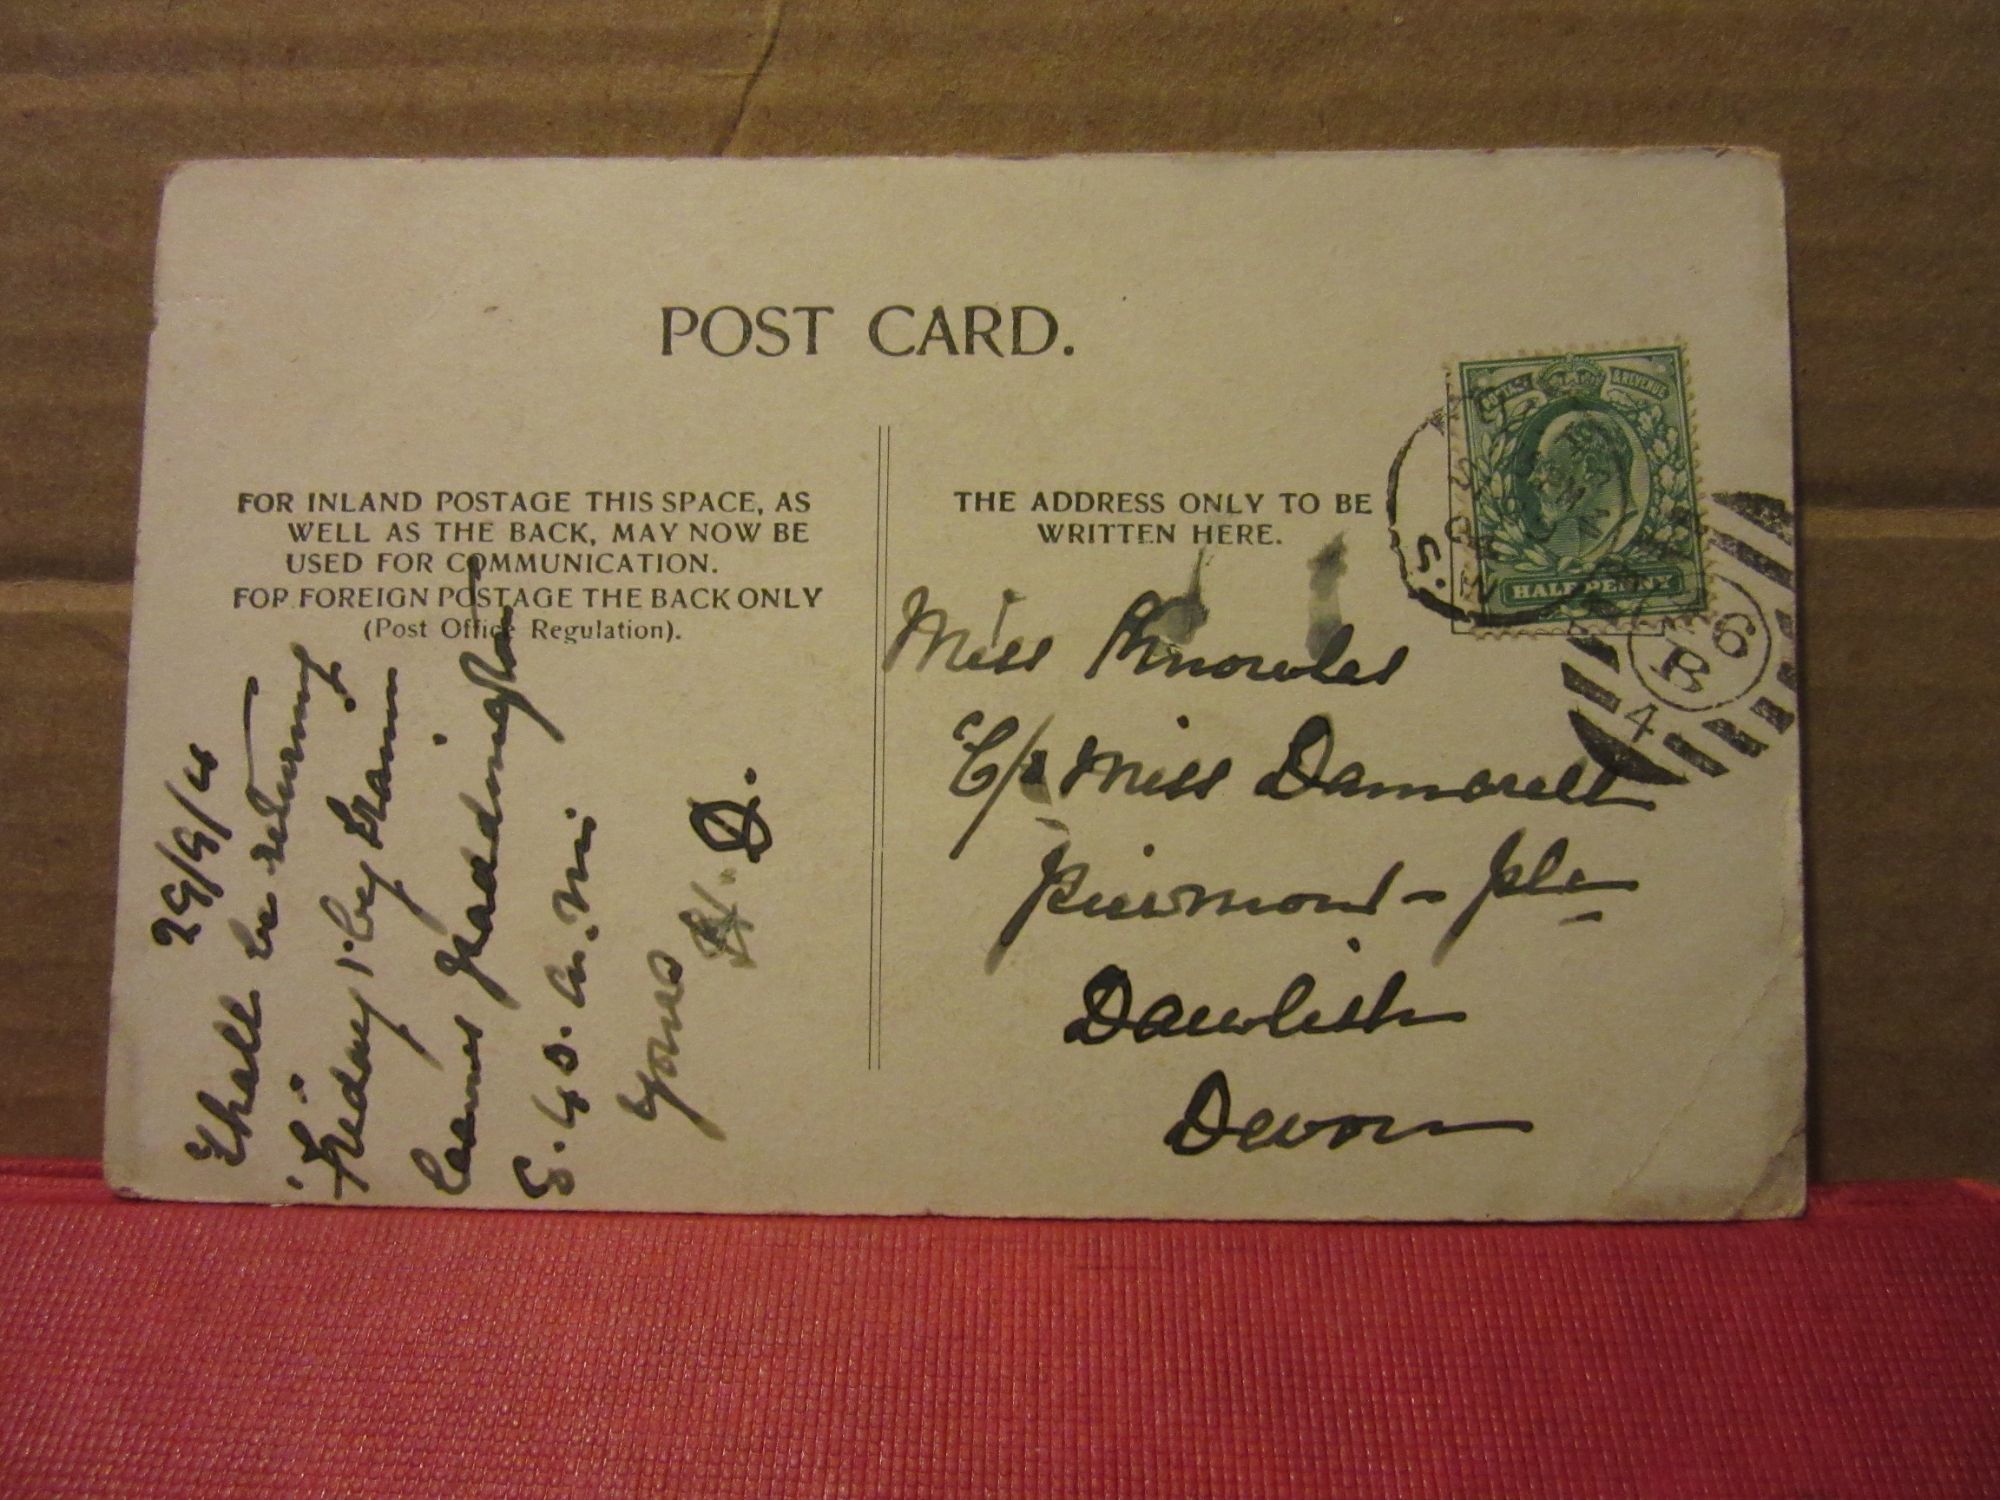 POST CARD.
FOR INLAND POSTAGE THIS SPACE, AS
WELL AS THE BACK, MAY NOW BE
USED FOR COMMUNICATION.
FOR FOREIGN POSTAGE THE BACK ONLY
(Post Office Regulation).
29/9/4
I shall be returning
Friday 1. by train
leaves Paddington
5.45. a.m.
Yours H. D.
THE ADDRESS ONLY TO BE
WRITTEN HERE.
Miss Knowles
C/o Miss Damarell
Piermont Pla
Dawlish
Devon
POSTAGE & REVENUE
HALFPENNY
S.W
6
B
4